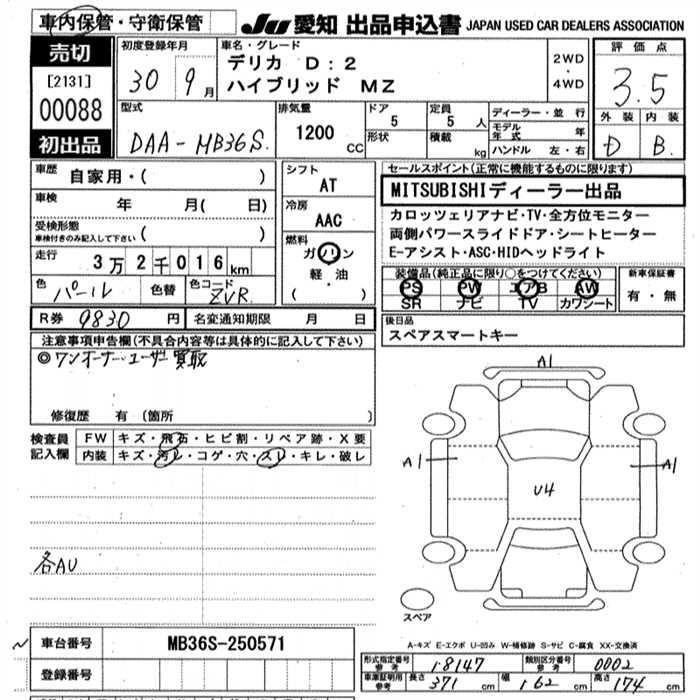 車内保管・守衛保管
JU 愛知 出品申込書 JAPAN USED CAR DEALERS ASSOCIATION
売切
[2131]
00088
初出品
初度登録年月
30 9月
車名・グレード
デリカ D:2
ハイブリッド MZ
2WD
・
4WD
評価点
3.5
外装 内装
D B
型式
DAA-MB36S
排気量
1200 CC
ドア
5
形状
定員
5 人
積載 kg
ディーラー・並行
モデル年式 年
ハンドル 左・右
車歴 自家用・( )
車検 年 月( 日)
受検形態
車検付きのみ記入して下さい ( )
走行 3万2千016km
色 パール 色替 色コード ZVR
シフト
AT
冷房
AAC
燃料
ガソリン
軽・油
( )
セールスポイント(正常に機能するものに限ります)
MITSUBISHIディーラー出品
カロッツェリアナビ・TV・全方位モニター
両側パワースライドドア・シートヒーター
E-アシスト・ASC・HIDヘッドライト
装備品(純正品に限り○をつけてください)
PS PW エアB AW
SR ナビ TV カワシート
新車保証書
有・無
R券 9830 円 名変通知期限 月 日
後日品
スペアスマートキー
注意事項申告欄(不具合内容等は具体的に記入して下さい)
◎ワンオーナーユーザー買取
修復歴 有(箇所 )
検査員
記入欄
FW キズ・飛石・ヒビ割・リペア跡・X要
内装 キズ・汚レ・コゲ・穴・スレ・キレ・破レ
各AU
A1
A1
A1
U4
スペア
A-キズ E-エクボ U-凹み W-補修跡 S-サビ C-腐食 XX-交換済
車台番号 MB36S-250571
登録番号
形式指定番号 参考 18147 類別区分番号 参考 0002
車庫証明用 参考 長さ 371 cm 幅 162 cm 高さ 174 cm